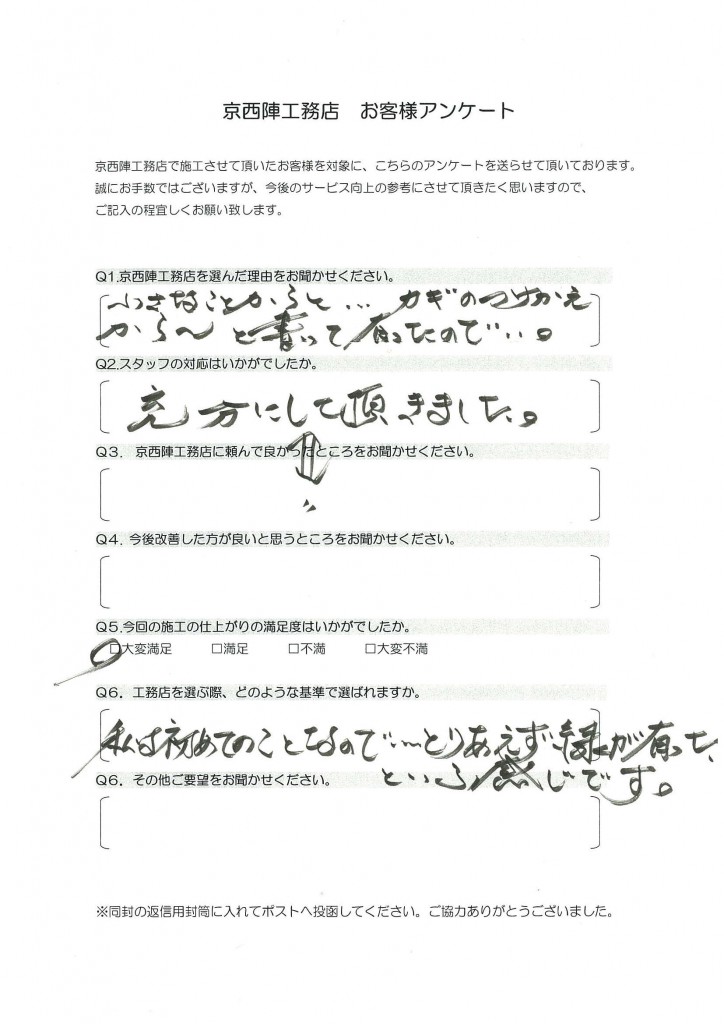 京西陣工務店　お客様アンケート
京西陣工務店で施工させて頂いたお客様を対象に、こちらのアンケートを送らせて頂いております。
誠にお手数ではございますが、今後のサービス向上の参考にさせて頂きたく思いますので、
ご記入の程宜しくお願い致します。
Q1.京西陣工務店を選んだ理由をお聞かせください。
小さなことからと… カギのつけかえ
から〜 と書って有ったので…。
Q2.スタッフの対応はいかがでしたか。
充分にして頂きました。
Q3. 京西陣工務店に頼んで良かったところをお聞かせください。
Q4. 今後改善した方が良いと思うところをお聞かせください。
Q5.今回の施工の仕上がりの満足度はいかがでしたか。
□大変満足　□満足　□不満　□大変不満
Q6. 工務店を選ぶ際、どのような基準で選ばれますか。
私は初めてのことなので…とりあえず縁が有った、
という感じです。
Q6. その他ご要望をお聞かせください。
※同封の返信用封筒に入れてポストへ投函してください。ご協力ありがとうございました。